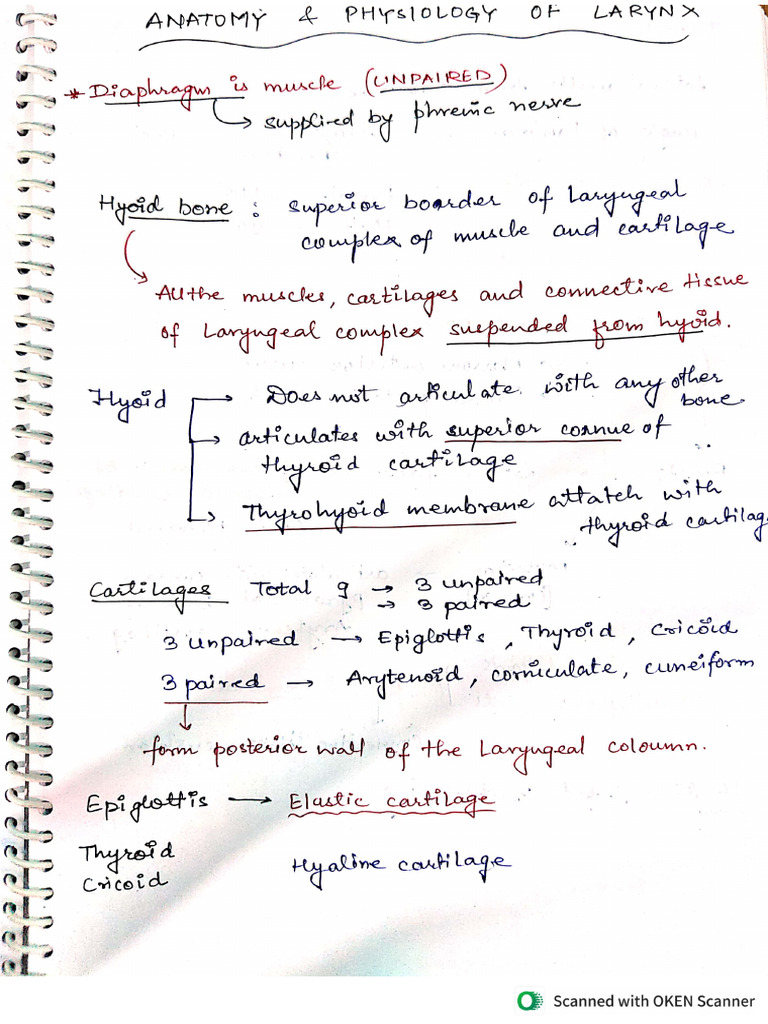 ANATOMY & PHYSIOLOGY OF LARYNX
* Diaphragm is muscle (UNPAIRED)
supplied by phrenic nerve
Hyoid bone : superior boarder of Laryngeal
complex of muscle and cartilage
All the muscles, cartilages and connective tissue
of Laryngeal complex suspended from hyoid.
Hyoid → Does not articulate with any other
bone
→ articulates with superior cornue of
thyroid cartilage
→ Thyrohyoid membrane attatch with
thyroid cartilag
Cartilages Total 9 → 3 unpaired
→ 3 paired
3 unpaired → Epiglottis, Thyroid, Cricoid
3 paired → Arytenoid, corniculate, cuneiform
form posterior wall of the Laryngeal coloumn.
Epiglottis → Elastic cartilage
Thyroid
Cricoid
Hyaline cartilage
Scanned with OKEN Scanner